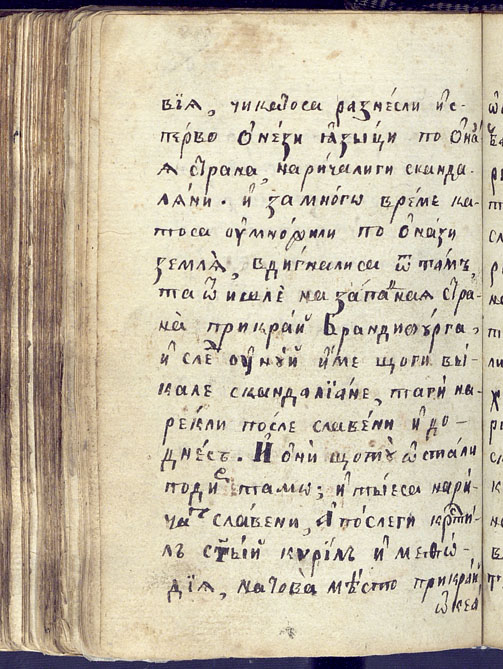 вїѧ, чикатоса разнесли и с-
перво онези ѧзыци по онаѧ
ѧ страна, наричалиги сканда-
лѧни. и за многѡ време ка-
тоса оумножили по онази
землѧ, вдигналиса ѿ тамъ,
та ѿишлѐ на западнаѧ стра-
на при край Брандибурга,
и слеⷣ оуному име щоги вы-
кале скандалїане, таги на-
рекли после славѣни и до-
днесь. И они щото ѡстали
поди с тамо; и тыеса нари-
чатъ славени, А послеги крⷭти-
лъ ст҃ый курілъ и меѳѡ-
дїѧ, на това мѣсто при край
ѡкеа